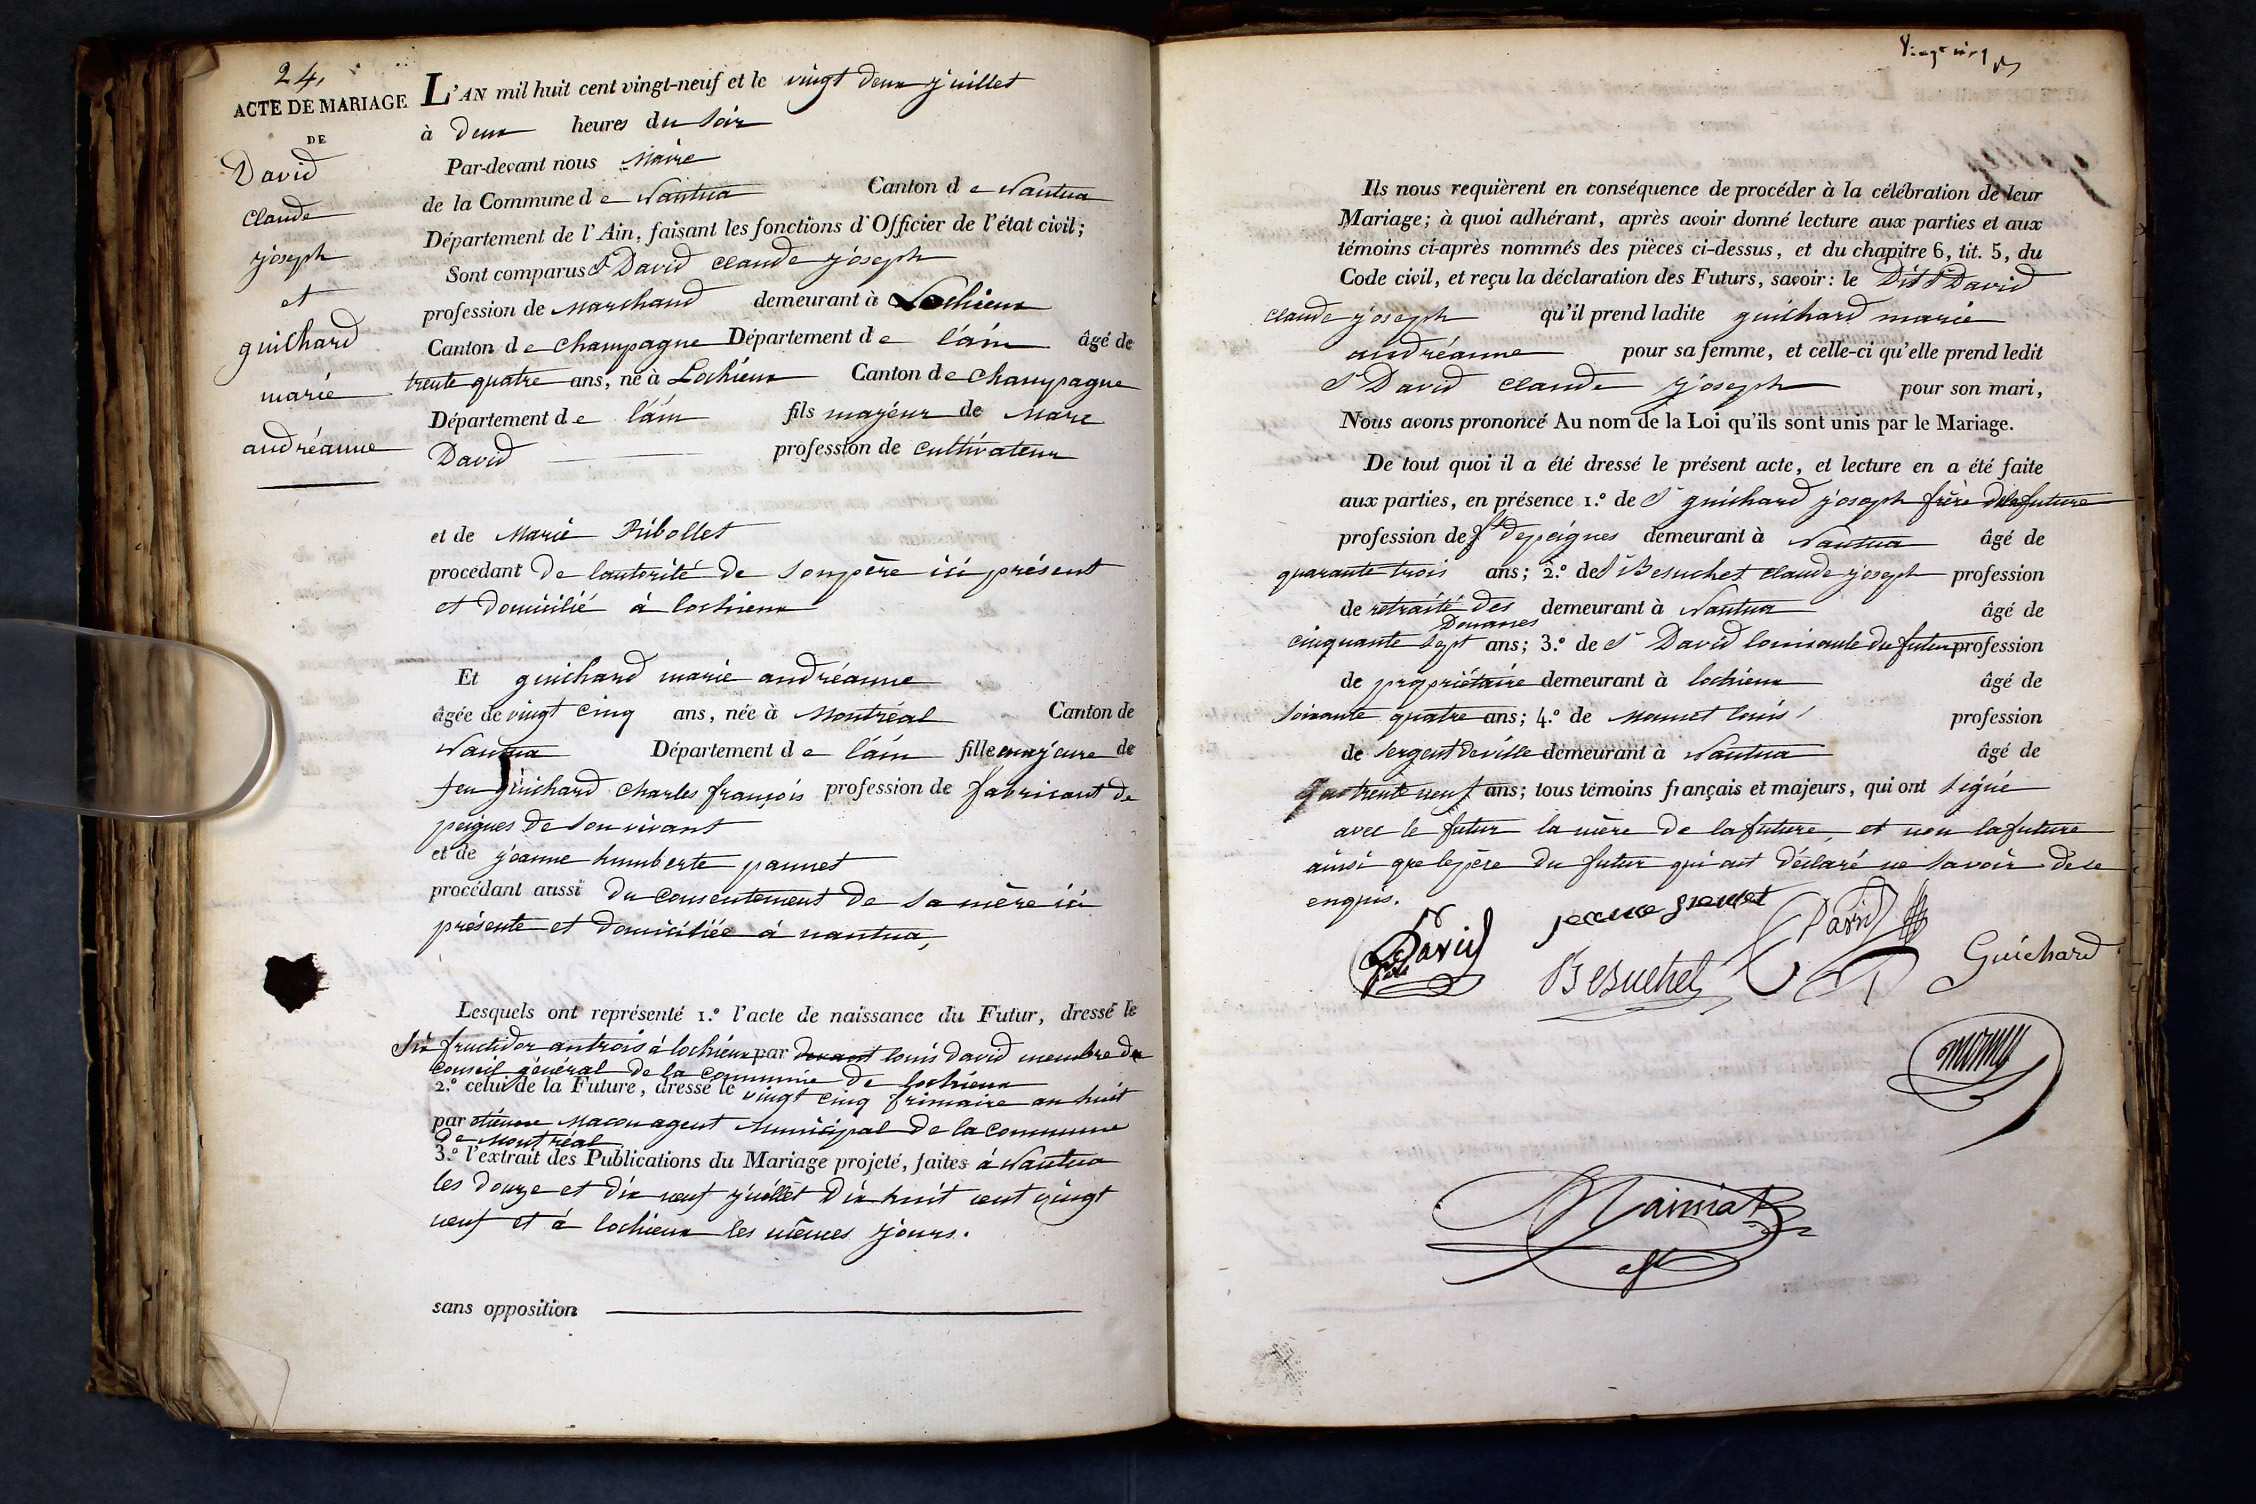 24.
ACTE DE MARIAGE
DE
David
claude
joseph
et
guichard
marie
andréanne
L'AN mil huit cent vingt-neuf et le vingt deux juillet
à deux heures du soir
Par-devant nous Maire
de la Commune de Nantua Canton de Nantua
Département de l'Ain, faisant les fonctions d'Officier de l'état civil;
Sont comparus Sr David claude joseph
profession de Marchand demeurant à Lochieux
Canton de champagne Département de l'ain âgé de
trente quatre ans, né à Lochieux Canton de champagne
Département de l'ain fils majeur de Marc
David profession de cultivateur
et de Marie Ribollet
procédant de lautorité de son père ici présent
et domicilié à lochieux
Et guichard marie andréanne
âgée de vingt cinq ans, née à Montréal Canton de
Nantua Département de l'ain fille majeure de
feu guichard charles françois profession de fabricant de
peignes de son vivant
et de jeanne humberte pannet
procédant aussi du consentement de sa mère ici
présente et domiciliée à nantua,
Lesquels ont représenté 1.º l'acte de naissance du Futur, dressé le
six fructidor an trois à lochieux par devant louis david membre du
conseil général de la commune de lochieux
2.º celui de la Future, dressé le vingt cinq frimaire an huit
par étienne Macon agent Municipal de la commune
de Montréal
3.º l'extrait des Publications du Mariage projeté, faites à Nantua
les douze et dix neuf juillet dix huit cent vingt
neuf et à lochieux les mêmes jours.
sans opposition
Ils nous requièrent en conséquence de procéder à la célébration de leur
Mariage; à quoi adhérant, après avoir donné lecture aux parties et aux
témoins ci-après nommés des pièces ci-dessus, et du chapitre 6, tit. 5, du
Code civil, et reçu la déclaration des Futurs, savoir: le Dit Sr David
claude joseph qu'il prend ladite guichard marie
andréanne pour sa femme, et celle-ci qu'elle prend ledit
Sr David claude joseph pour son mari,
Nous avons prononcé Au nom de la Loi qu'ils sont unis par le Mariage.
De tout quoi il a été dressé le présent acte, et lecture en a été faite
aux parties, en présence 1.º de Sr guichard joseph frère de la future
profession de ft depeignes demeurant à Nantua âgé de
quarante trois ans; 2.º de Sr Besuchet claude joseph profession
de retraité des demeurant à Nantua âgé de
Douanes
cinquante sept ans; 3.º de Sr David louis oncle du futur profession
de propriétaire demeurant à lochieux âgé de
soixante quatre ans; 4.º de Monnet louis profession
de sergent deville demeurant à Nantua âgé de
trente neuf ans; tous témoins français et majeurs, qui ont signé
avec le futur la mère de la future, et non la future
ainsi que le père du futur qui ont déclaré ne savoir de ce
enquis.
David
fils
David
Besuchet
Guichard